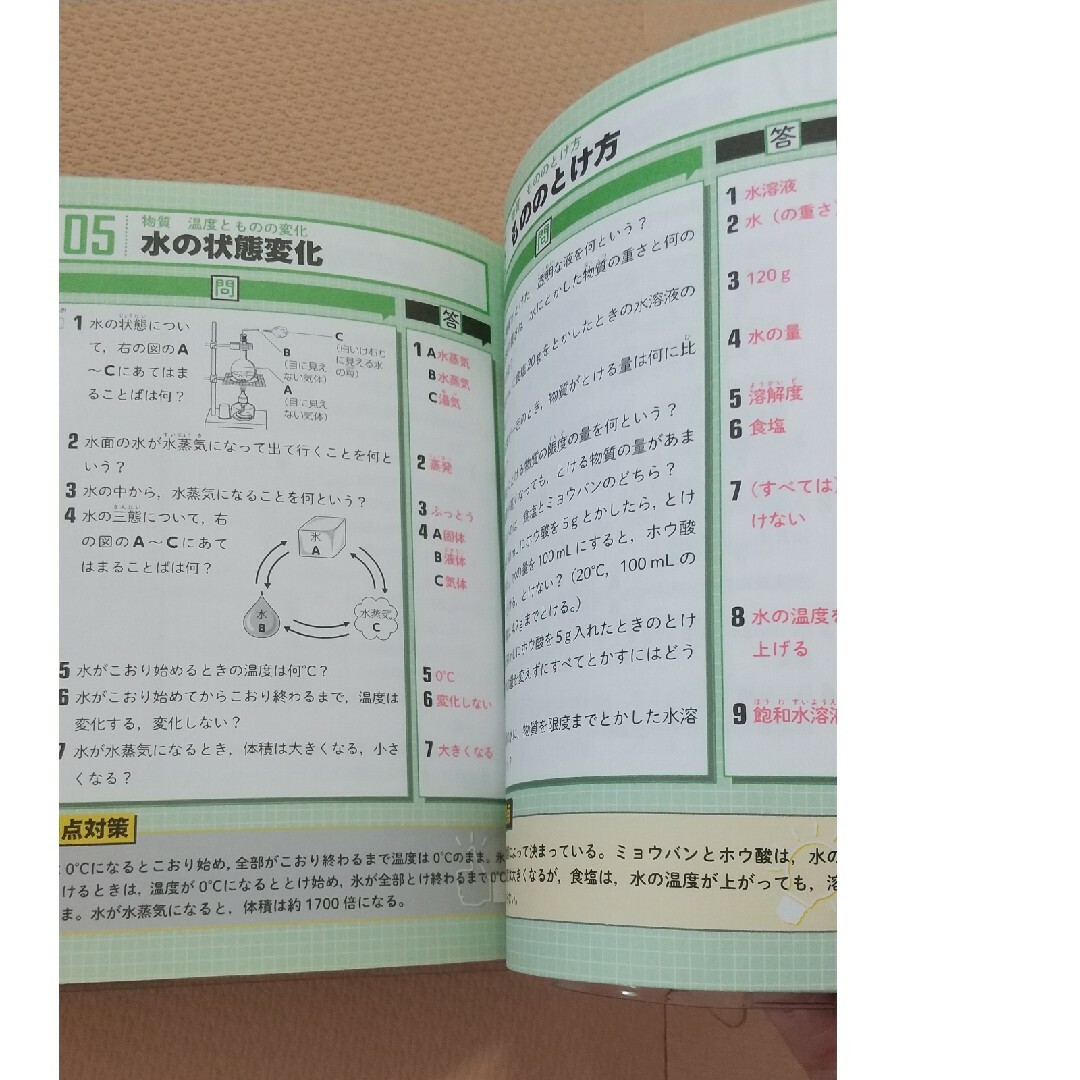 05
物質 温度とものの変化
水の状態変化
問
1 水の状態につい
て，右の図のA
～Cにあてはま
ることばは何？
C
B
(目に見え
ない気体)
に見える水
A
(目に見え
ない気体)
2 水面の水が水蒸気になって出て行くことを何と
いう？
3 水の中から，水蒸気になることを何という？
4 水の三態について，右
の図のA～Cにあて
はまることばは何？
氷
A
水
B
水蒸気
C
5 水がこおり始めるときの温度は何℃？
6 水がこおり始めてからこおり終わるまで，温度は
変化する，変化しない？
7 水が水蒸気になるとき，体積は大きくなる，小さ
くなる？
答
1 A水蒸気
B水蒸気
C湯気
2 蒸発
3 ふっとう
4 A固体
B液体
C気体
5 0℃
6 変化しない
7 大きくなる
点対策
0℃になるとこおり始め，全部がこおり終わるまで温度は0℃のまま。氷
けるときは，温度が0℃になるととけ始め，氷が全部とけ終わるまで0℃
ま。水が水蒸気になると，体積は約1700倍になる。
もののとけ方
もののとけ方
問
透明な液を何という？
水にとかした物質の重さと何の
食塩20gをとかしたときの水溶液の
そのとき，物質がとける量は何に比
る物質の限度の量を何という？
なっても，とける物質の量があま
食塩とミョウバンのどちら？
ホウ酸を5gとかしたら，とけ
の量を100mLにすると，ホウ酸
とけない？（20℃，100mLの
までとける。）
にホウ酸を5g入れたときのとけ
変えずにすべてとかすにはどう
物質を限度までとかした水溶
答
1 水溶液
2 水（の重さ
3 120g
4 水の量
5 溶解度
6 食塩
7 （すべては
けない
8 水の温度を
上げる
9 飽和水溶液
よって決まっている。ミョウバンとホウ酸は，水の
大きくなるが，食塩は，水の温度が上がっても，溶